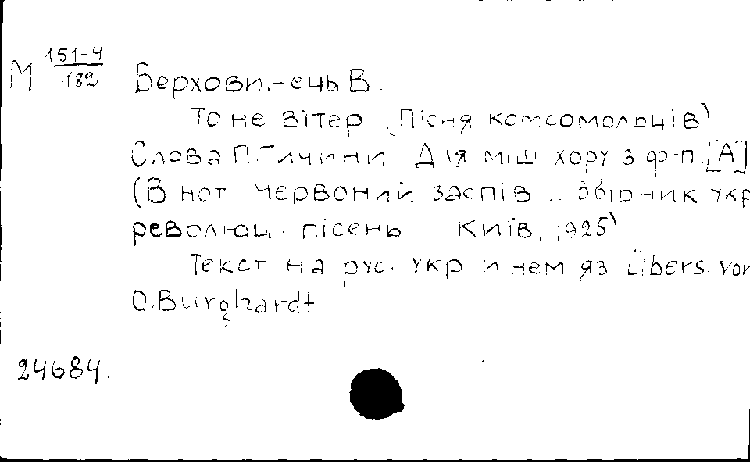 М 151-4/182 Берховин-ець В.
То не вітер (Пісня комсомольців)
Слова П.Тичини Для міш хору з ф-п. [А]
(В нот Червоний заспів .. Збірник укр
революц. пісень Київ, 1925)
Текст на рус. укр и нем яз Übers. von
O. Burghardt
24684.